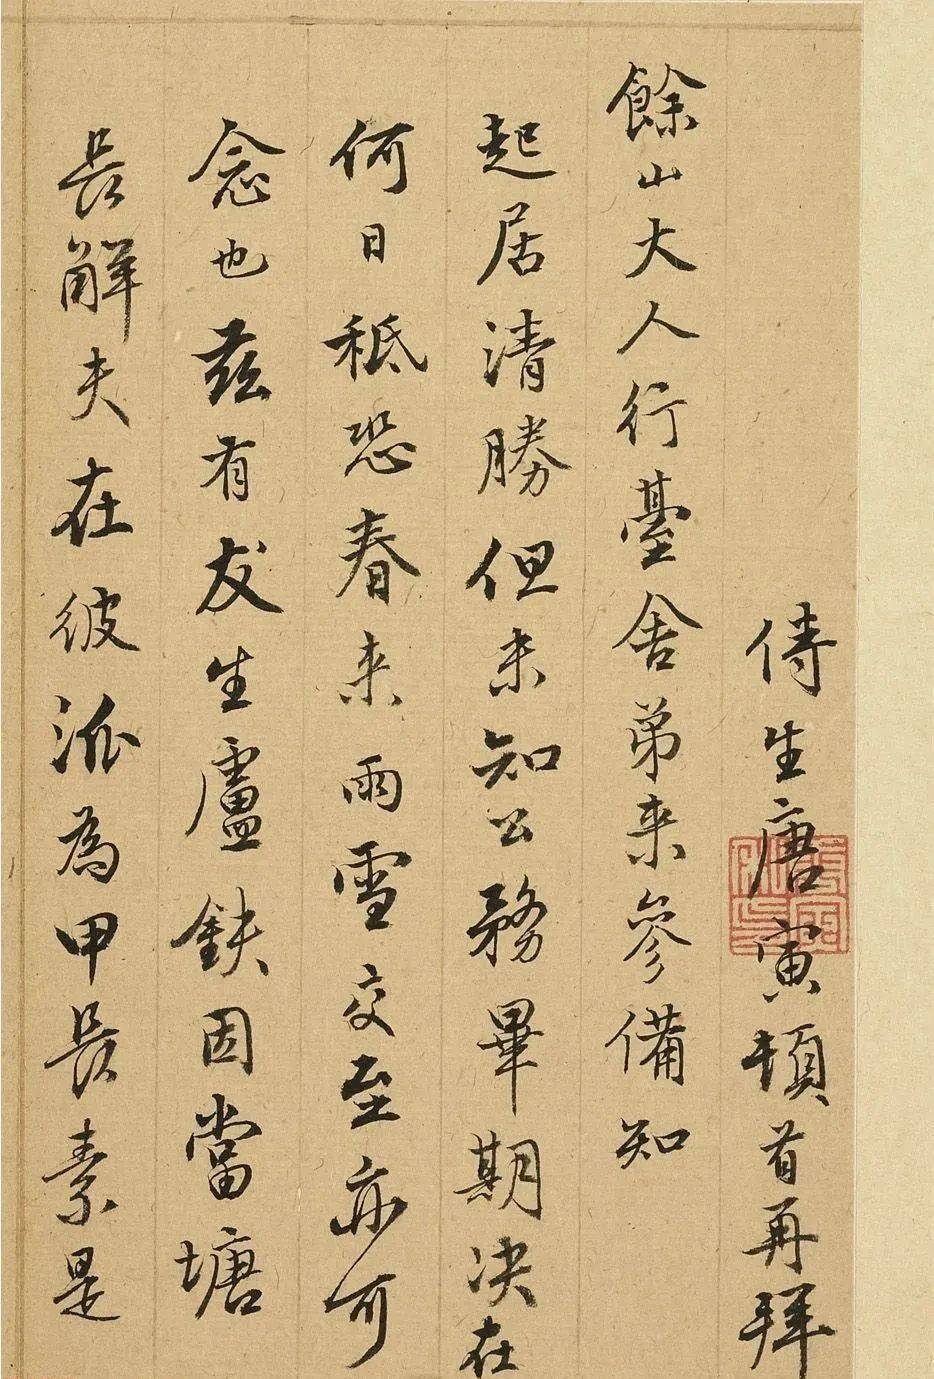 侍生唐寅頓首再拜
餘山大人行臺舍弟来參備知
起居清勝但未知公務畢期决在
何日秪恐春来雨雪交至亦可
念也兹有友生盧鈇因當塘
長解夫在彼派為甲長素是